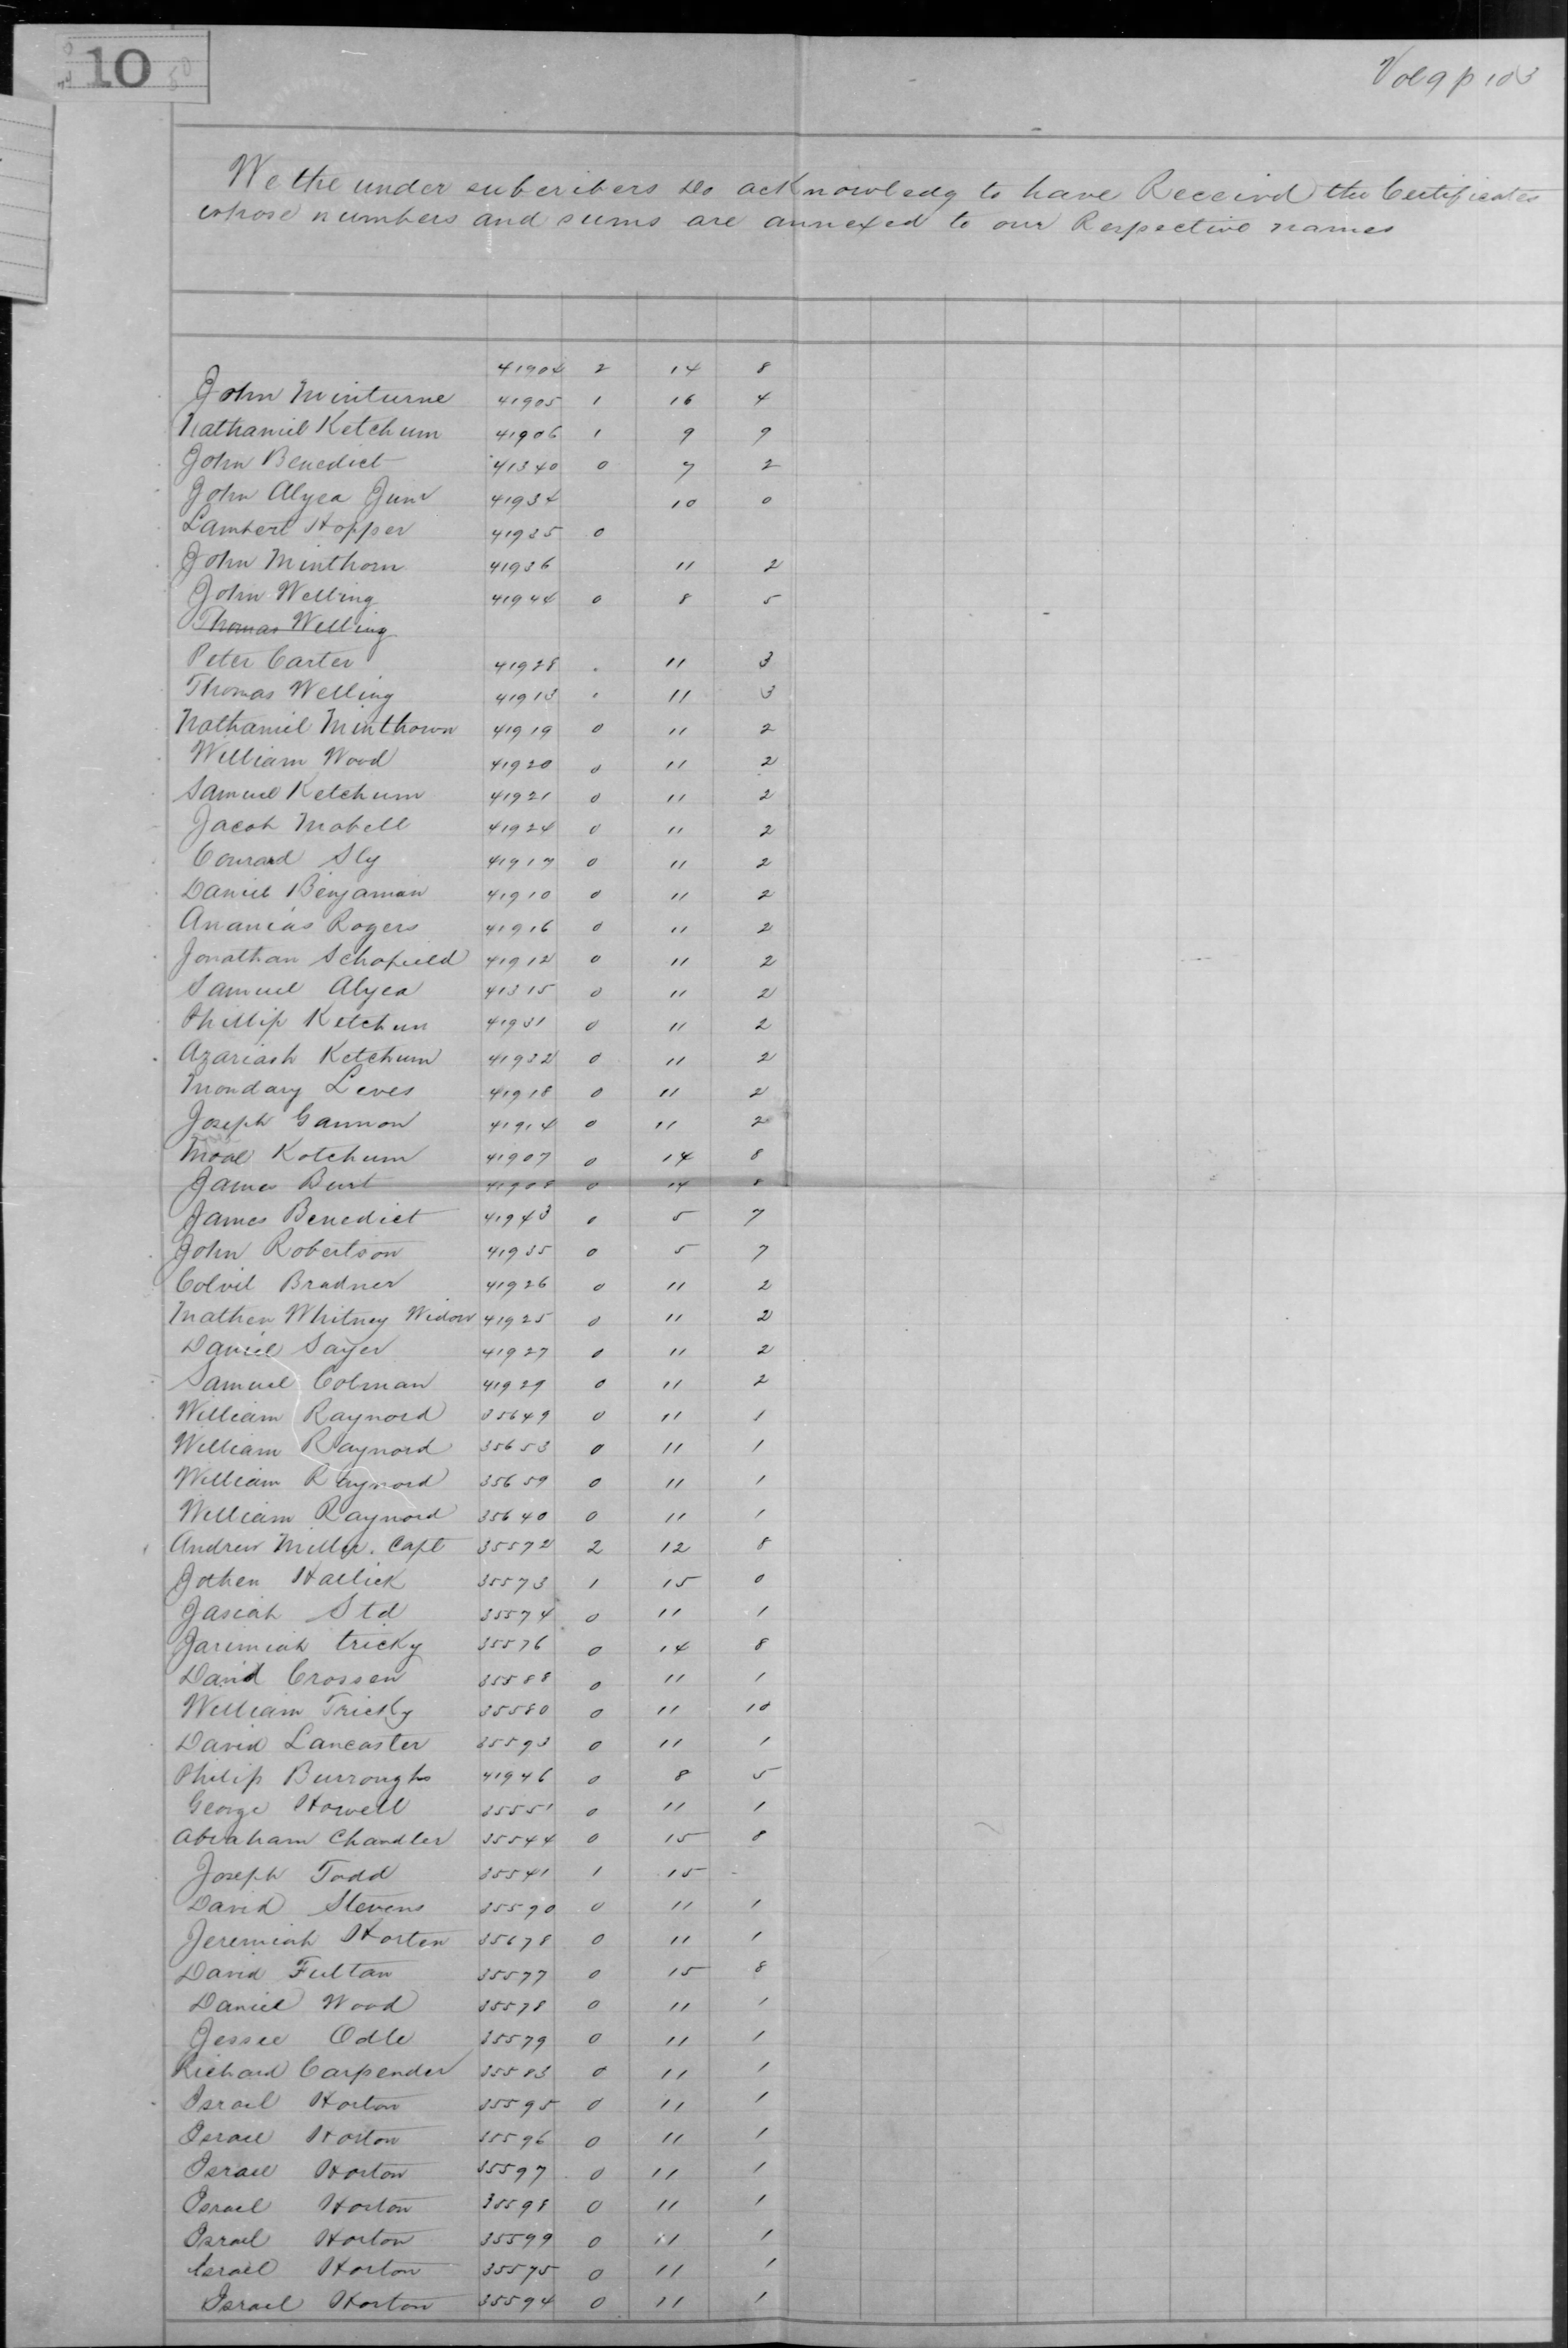 10
Vol 9 p 103
We the under subcribers do acknowledg to have Receivd the Certificates
whose numbers and sums are annexed to our Respective names
41904 2 14 8
John Minturne 41905 1 16 4
Nathaniel Ketchum 41906 1 9 9
John Benedict 41340 0 7 2
John Alyea Junr 41934 10 0
Lambert Hopper 41935 0
John Minthorn 41936 11 2
John Welling 41944 0 8 5
Thomas Welling
Peter Carter 41928 . 11 3
Thomas Welling 41913 . 11 3
Nathaniel Minthown 41919 0 11 2
William Wood 41920 0 11 2
Samuel Ketchum 41921 0 11 2
Jacob Mabell 41924 0 11 2
Conrad Sly 41917 0 11 2
Daniel Benjaman 41910 0 11 2
Ananias Rogers 41916 0 11 2
Jonathan Schofield 41912 0 11 2
Samuel Alyea 41315 0 11 2
Phillip Ketchun 41931 0 11 2
Azariash Ketchum 41932 0 11 2
Mondary Leves 41918 0 11 2
Joseph Gannon 41914 0 11 2
Ketchum 41907 0 14 8
James Burt 41908 0 14 8
James Benedict 41943 0 5 7
John Robertson 41935 0 5 7
Colvil Bradner 41926 0 11 2
Mathen Whitney Widow 41925 0 11 2
Daniel Sayer 41927 0 11 2
Samuel Colman 41929 0 11 2
William Raynord 35649 0 11 1
William Raynord 35653 0 11 1
William Raynord 35659 0 11 1
William Raynord 35640 0 11 1
Andrew Miller. Capt 35572 2 12 8
Jothen Hallick 35573 1 15 0
Jasiah Std 35574 0 11 1
Jarimiah tricky 35576 0 14 8
David Crossen 35588 0 11 1
William Tricky 35580 0 11 10
David Lancaster 35593 0 11 1
Philip Burroughs 41946 0 8 5
George Howell 35551 0 11 1
Abraham Chandler 35544 0 15 8
Joseph Todd 35541 1 15
David Stevens 35590 0 11 1
Jeremiah Horten 35678 0 11 1
David Fultan 35577 0 15 8
Daniel Wood 35578 0 11 1
Jessee Odle 35579 0 11 1
Richard Carpender 35583 0 11 1
Israel Horton 35595 0 11 1
Israel Horton 35596 0 11 1
Israel Horton 35597 0 11 1
Israel Horton 35598 0 11 1
Israel Horton 35599 0 11 1
Israel Horton 35575 0 11 1
Israel Horton 35594 0 11 1